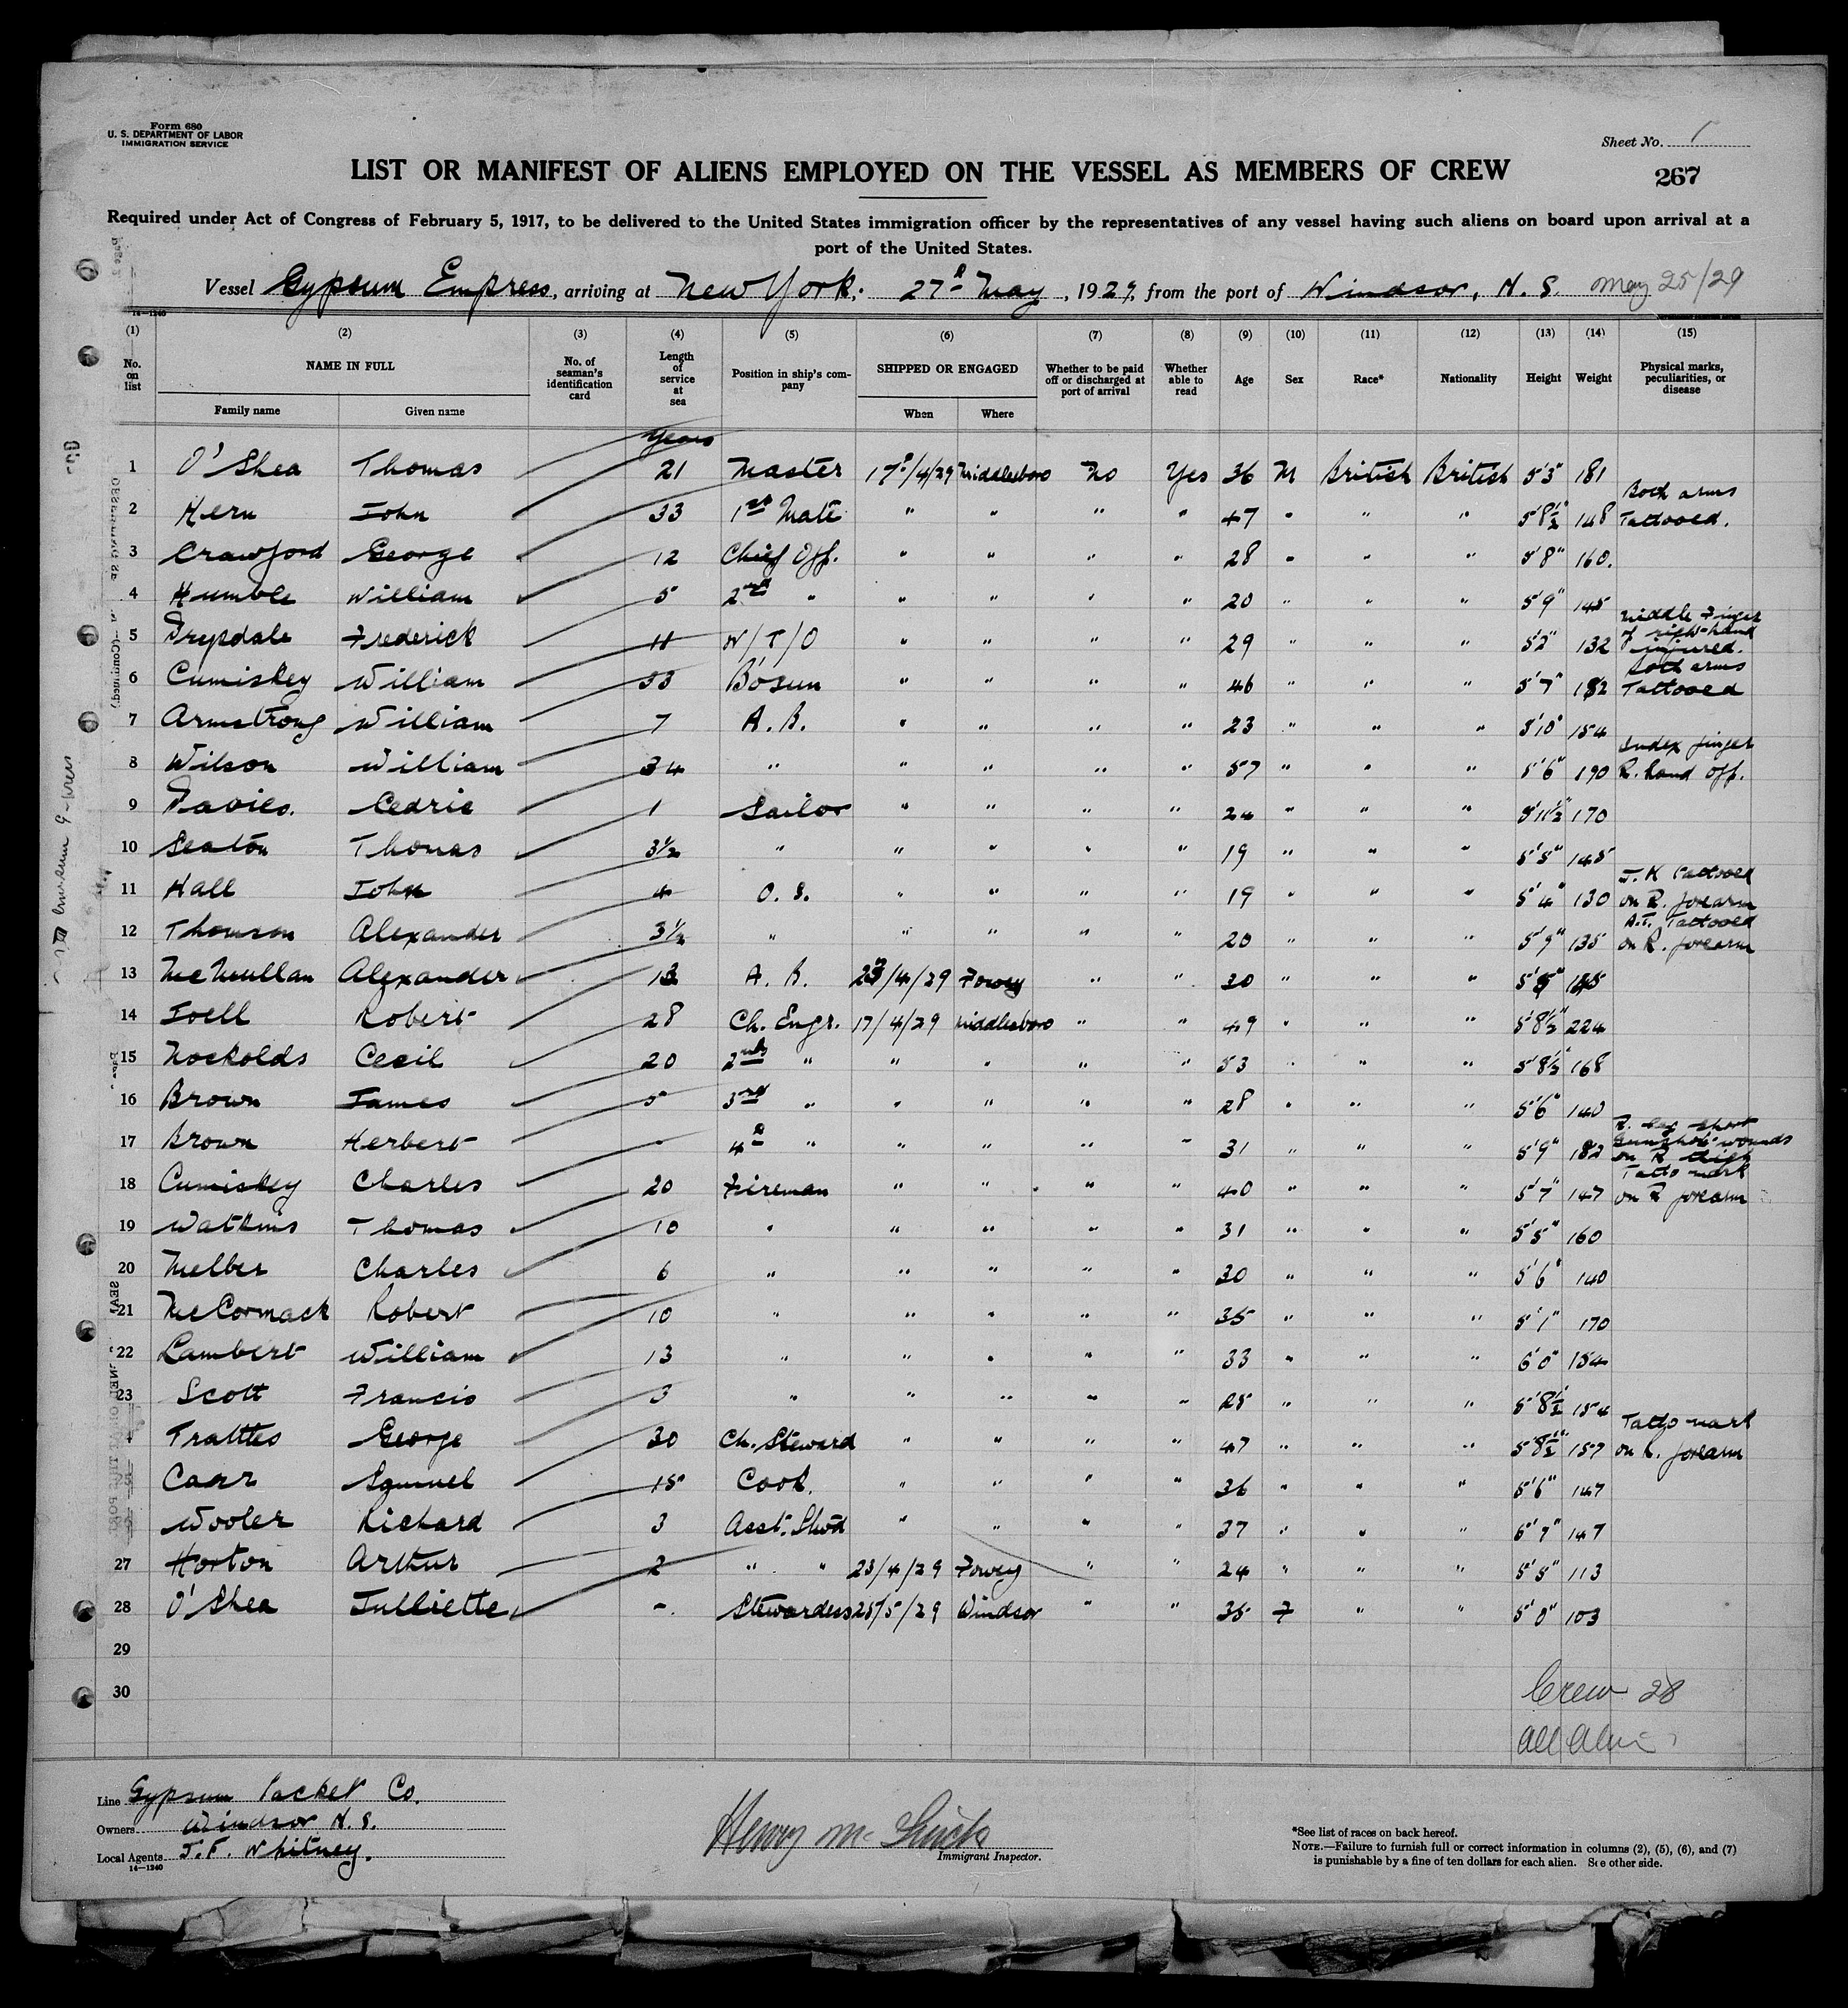 Form 680
U. S. DEPARTMENT OF LABOR
IMMIGRATION SERVICE
Sheet No. 1
LIST OR MANIFEST OF ALIENS EMPLOYED ON THE VESSEL AS MEMBERS OF CREW
267
Required under Act of Congress of February 5, 1917, to be delivered to the United States immigration officer by the representatives of any vessel having such aliens on board upon arrival at a
port of the United States.
Vessel Gypsum Empress, arriving at New York; 27th May, 1929, from the port of Windsor, N. S. May 25/29
14—1240
(1) (2) (3) (4) (5) (6) (7) (8) (9) (10) (11) (12) (13) (14) (15)
No. on list NAME IN FULL No. of seaman's identification card Length of service at sea Position in ship's company SHIPPED OR ENGAGED Whether to be paid off or discharged at port of arrival Whether able to read Age Sex Race* Nationality Height Weight Physical marks, peculiarities, or disease
Family name Given name When Where
Years
1 O'Shea Thomas 21 Master 17/4/29 Middlesboro No Yes 36 M British British 5'3" 181
2 Kern John 33 1st Mate " " " " 47 " " " 5'8½" 148 Both arms Tattooed.
3 Crawford George 12 Chief Off. " " " " 28 " " " 5'8" 160.
4 Humble William 5 2nd " " " " " 20 " " " 5'9" 145
5 Drysdale Frederick 11 W/T/O " " " " 29 " " " 5'2" 132 Middle Finger of right-hand injured.
6 Cumiskey William 33 Bo'sun " " " " 46 " " " 5'7" 182 Both arms Tattooed
7 Armstrong William 7 A. B. " " " " 23 " " " 5'10" 154
8 Wilson William 34 " " " " " 57 " " " 5'6" 190 Index finger R. hand off.
9 Davies. Cedric 1 Sailor " " " " 24 " " " 5'11½" 170
10 Seaton Thomas 3½ " " " " " 19 " " " 5'5" 145
11 Hall John 4 O. S. " " " " 19 " " " 5'4" 130 J. K Tattooed on R. forearm
12 Thomson Alexander 3½ " " " " " 20 " " " 5'9" 135 A.T. Tattooed on R. forearm
13 McMullan Alexander 13 A. B. 23/4/29 Fowey " " 30 " " " 5'
14 Joell Robert 28 Ch. Engr. 17/4/29 Middlesboro " " 49 " " " 5'8½" 224
15 Nockolds Cecil 20 2nd " " " " " 53 " " " 5'8½" 168
16 Brown James 5 3rd " " " " " 28 " " " 5'6" 140
17 Brown Herbert - 4th " " " " " 31 " " " 5'9" 182 R. leg short Gunshot wounds on R thigh
18 Cumiskey Charles 20 Fireman " " " " 40 " " " 5'7" 147 Tatto mark on R forearm
19 Watkins Thomas 10 " " " " " 31 " " " 5'5" 160
20 Melber Charles 6 " " " " " 30 " " " 5'6" 140
21 McCormack Robert 10 " " " " " 35 " " " 5'1" 170
22 Lambert William 13 " " " " " 33 " " " 6'0" 154
23 Scott Francis 3 " " " " " 25 " " " 5'8½" 154
Trattles George 30 Ch. Steward " " " " 47 " " " 5'8½" 157 Tatto mark on R. forearm
25 Carr Samuel 15 Cook. " " " " 36 " " " 5'6" 147
Wooler Richard 3 Asst. Stwd " " " " 37 " " " 6'7" 147
27 Horton Arthur 2 " " 23/4/29 Fowey " " 24 " " " 5'5" 113
28 O'Shea Julliette -. Stewardess 25/5/29 Windsor " " 35 F " " 5'0" 103
29
30
Crew 28
All
Line Gypsum Packet Co.
Owners Windsor N. S.
Local Agents J. F. Whitney.
14—1240
Henry Mc
Immigrant Inspector.
*See list of races on back hereof.
NOTE.—Failure to furnish full or correct information in columns (2), (5), (6), and (7)
is punishable by a fine of ten dollars for each alien. See other side.